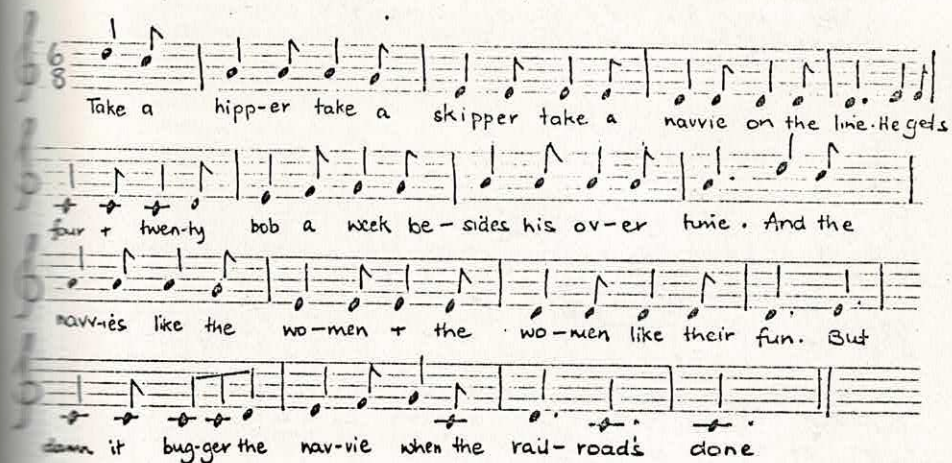 6
8
Take a hipp-er take a skipper take a navvie on the line. He gets
four + twen-ty bob a week be-sides his ov-er time. And the
navv-ies like the wo-men + the wo-men like their fun. But
damn it bug-ger the nav-vie when the rail-road's done